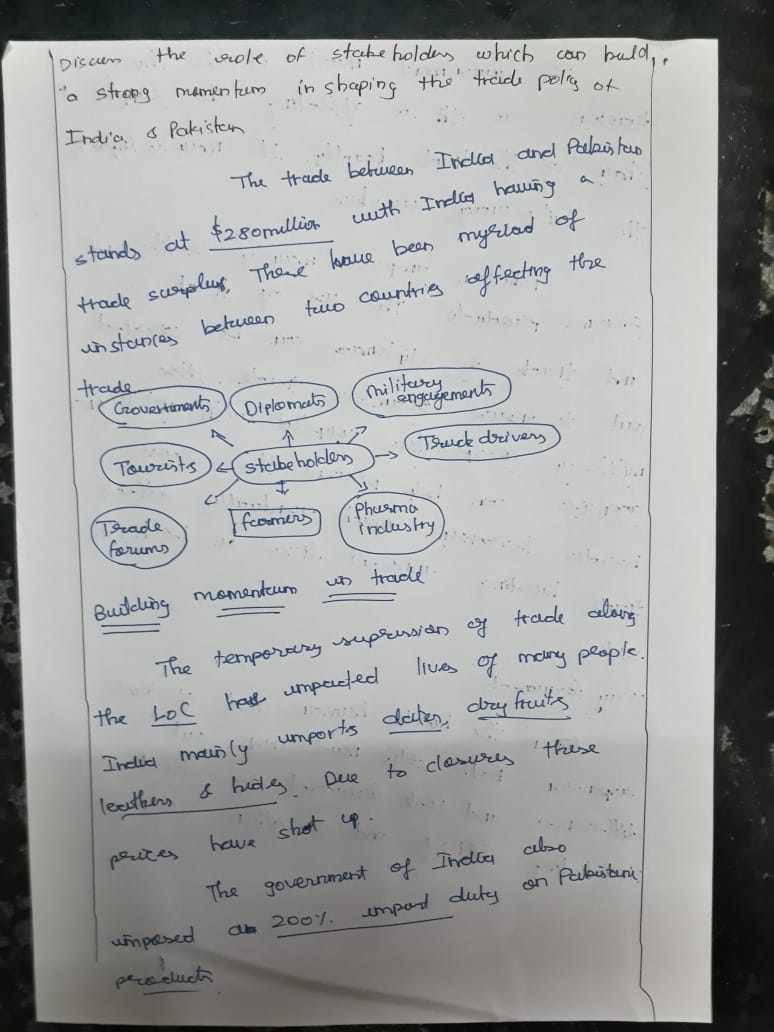 Discuss the role of stakeholders which can build
a strong momentum in shaping the trade policy of
India & Pakistan
The trade between India and Pakistan
stands at $280million with India having a
trade surplus, There have been myriad of
instances between two countries affecting the
trade
Governments Diplomats military engagements
Tourists stakeholders Truck drivers
Trade forums farmers Pharma industry
Building momentum in trade
The temporary supression of trade along
the LoC has impacted lives of many people.
India mainly imports dates, dry fruits,
leathers & hides. Due to closures these
prices have shot up.
The government of India also
imposed a 200% import duty on Pakistani
products